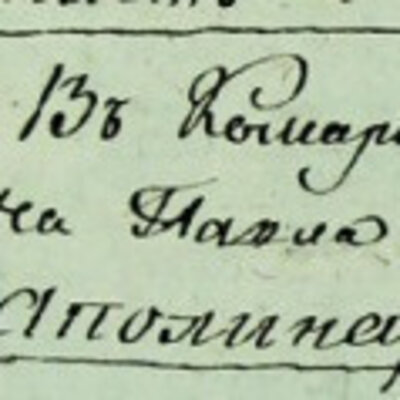 Въ Комар
на Павла
Аполинар